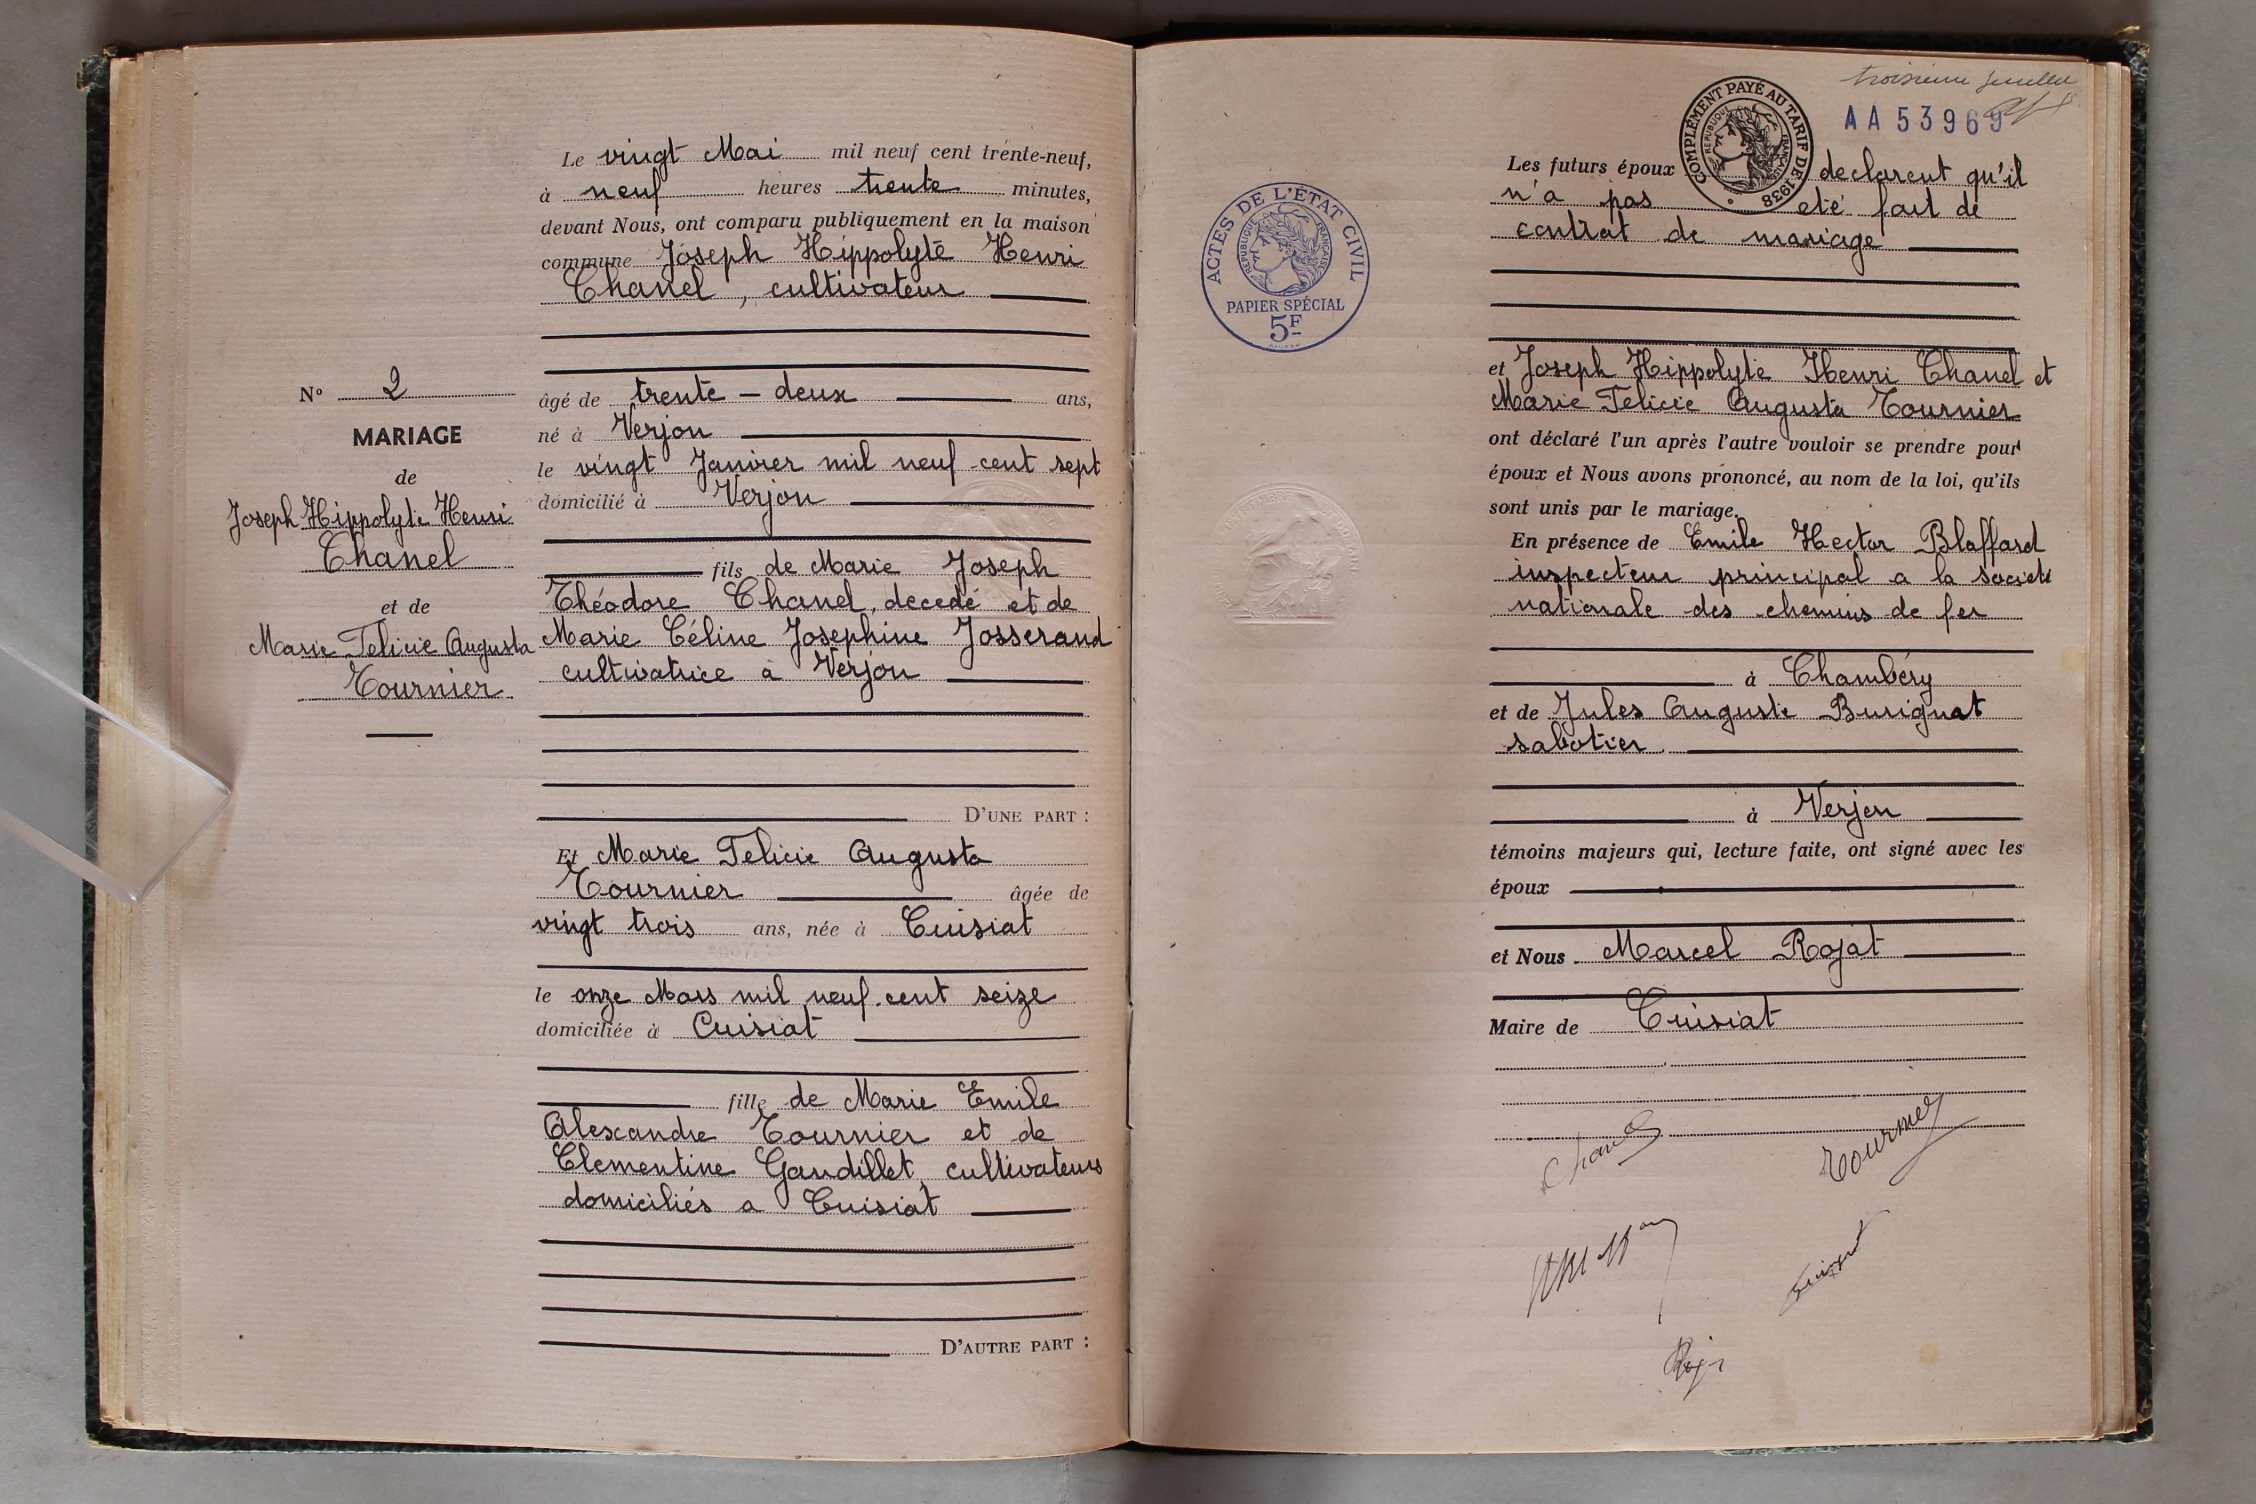 N° 2
MARIAGE
de
Joseph Hippolyte Henri
Chanel
et de
Marie Felicie Augusta
Tournier
Le vingt Mai mil neuf cent trente-neuf,
à neuf heures trente minutes,
devant Nous, ont comparu publiquement en la maison
commune Joseph Hippolyte Henri
Chanel, cultivateur
âgé de trente-deux ans,
né à Verjon
le vingt Janvier mil neuf cent sept
domicilié à Verjon
fils de Marie Joseph
Théodore Chanel, decedé et de
Marie Céline Josephine Josserand
cultivatrice à Verjon
D'UNE PART :
Et Marie Felicie Augusta
Tournier âgée de
vingt trois ans, née à Cuisiat
le onze Mars mil neuf cent seize
domiciliée à Cuisiat
fille de Marie Emile
Alexandre Tournier et de
Clementine Gaudillet cultivateurs
domiciliés a Cuisiat
D'AUTRE PART :
troisième
AA 53969
COMPLÉMENT PAYÉ AU TARIF DE 1938
RÉPUBLIQUE FRANÇAISE
ACTES DE L'ÉTAT CIVIL
RÉPUBLIQUE FRANÇAISE
PAPIER SPÉCIAL
5F
Les futurs époux declarent qu'il
n'a pas eté fait de
contrat de mariage
et Joseph Hippolyte Henri Chanel et
Marie Felicie Augusta Tournier
ont déclaré l'un après l'autre vouloir se prendre pour
époux et Nous avons prononcé, au nom de la loi, qu'ils
sont unis par le mariage.
En présence de Emile Hector Blaffard
inspecteur principal a la societé
nationale des chemins de fer
à Chambéry
et de Jules Auguste Burignat
sabotier
à Verjon
témoins majeurs qui, lecture faite, ont signé avec les
époux
et Nous Marcel Rojat
Maire de Cuisiat
Chanel
Tournier